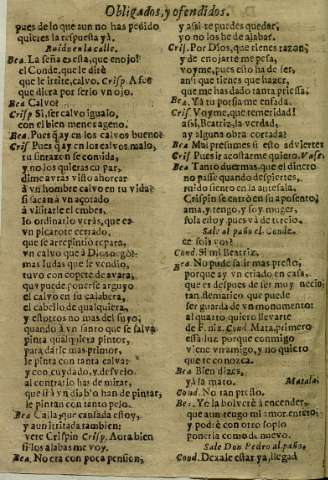 Obligados, y ofendidos.
pues de lo que aun no has pedido
quieres la respuesta yà.
Ruido en la calle.
Bea. La seña es esta, que enojo!
el Conde, que le dirè
que le irrite, calvo. Crisp. A fee
que diera por serlo vn ojo.
Bea Calvo?
Crisp Si, ser calvo igualo,
con el bien menos ageno.
Bea. Pues q ay en los calvos bueno?
Cris Pues q ay en los calvos malo,
tu sinrazon se comida,
y no los quieras
dime avràs visto ahorcar
à vn hombre calvo en tu vida?
si sacan à vn açotado
à visitar le el embès,
lo ordinario veràs, que es
vn picarote cerrado,
que se arrepintio repara,
vn calvo que à Dios
mas Iudas que le vendio,
tuvo con copete de avara,
quy puede ponerse arguyo
el calvo en su calabera,
el cabello de qualquiera,
y estotros no mas del suyo,
quando à vn santo que se salva
pinta qualquiera pintor,
para darle mas primor,
le pinta con tanta calva:
y con cuydado, y desvelo
al contrario has de mirar,
que si à vn diablo han de pintar,
le pintan con tanto pelo.
Bea Calla, que cansada estoy,
y aun irritada tambien:
vete Crispin Crisp. Aora bien
si los alabas me voy.
Bea. No era con poca pension,
y assi te puedes quedar,
yo no los he de alabar.
Cris. Por Dios, que tienes razon;
y de enojarte me pesa,
voyme, pues esto ha de ser,
ansi que tienes que hazer,
que me has dado tanta priessa.
Bea. Yà tu porfia me enfada.
Cris Voyme, que temeridad!
assi, Beatriz, la verdad,
ay alguna obra cortada?
Bea Mui presumes si esto adviertes
Cris Pues ir acostarme quiero. Vase.
Bea Tanto duermas, que el dinero
no passe quando despiertes,
ruido siento en la antesala,
Crispin se entrò en su aposento;
ama, y tengo, y soy muger,
sola estoy pues và de tercio.
Sale al paño el Conde.
ce sois vos?
Cond. Si mi Beatriz.
Bea. No pude salir mas presto,
porque ay vn criado en casa,
que es despues de ser muy necio;
tan flematico que puede
ser guarda de vn monumento:
al quarto quiero llevarte
de Cond Mata, primero
essa luz porque conmigo
viene vn amigo, y no quiero
que te conozca.
Bea Bien dizes,
yà la mato. Matala.
Cond. No tan presto.
Bea. Ye la bolverè à encender,
que aun tengo mi amor entero;
y podrè con otro soplo
ponerla como de nuevo.
Sale Don Pedro al paño.
Cond. Dexale estar ya, llegad